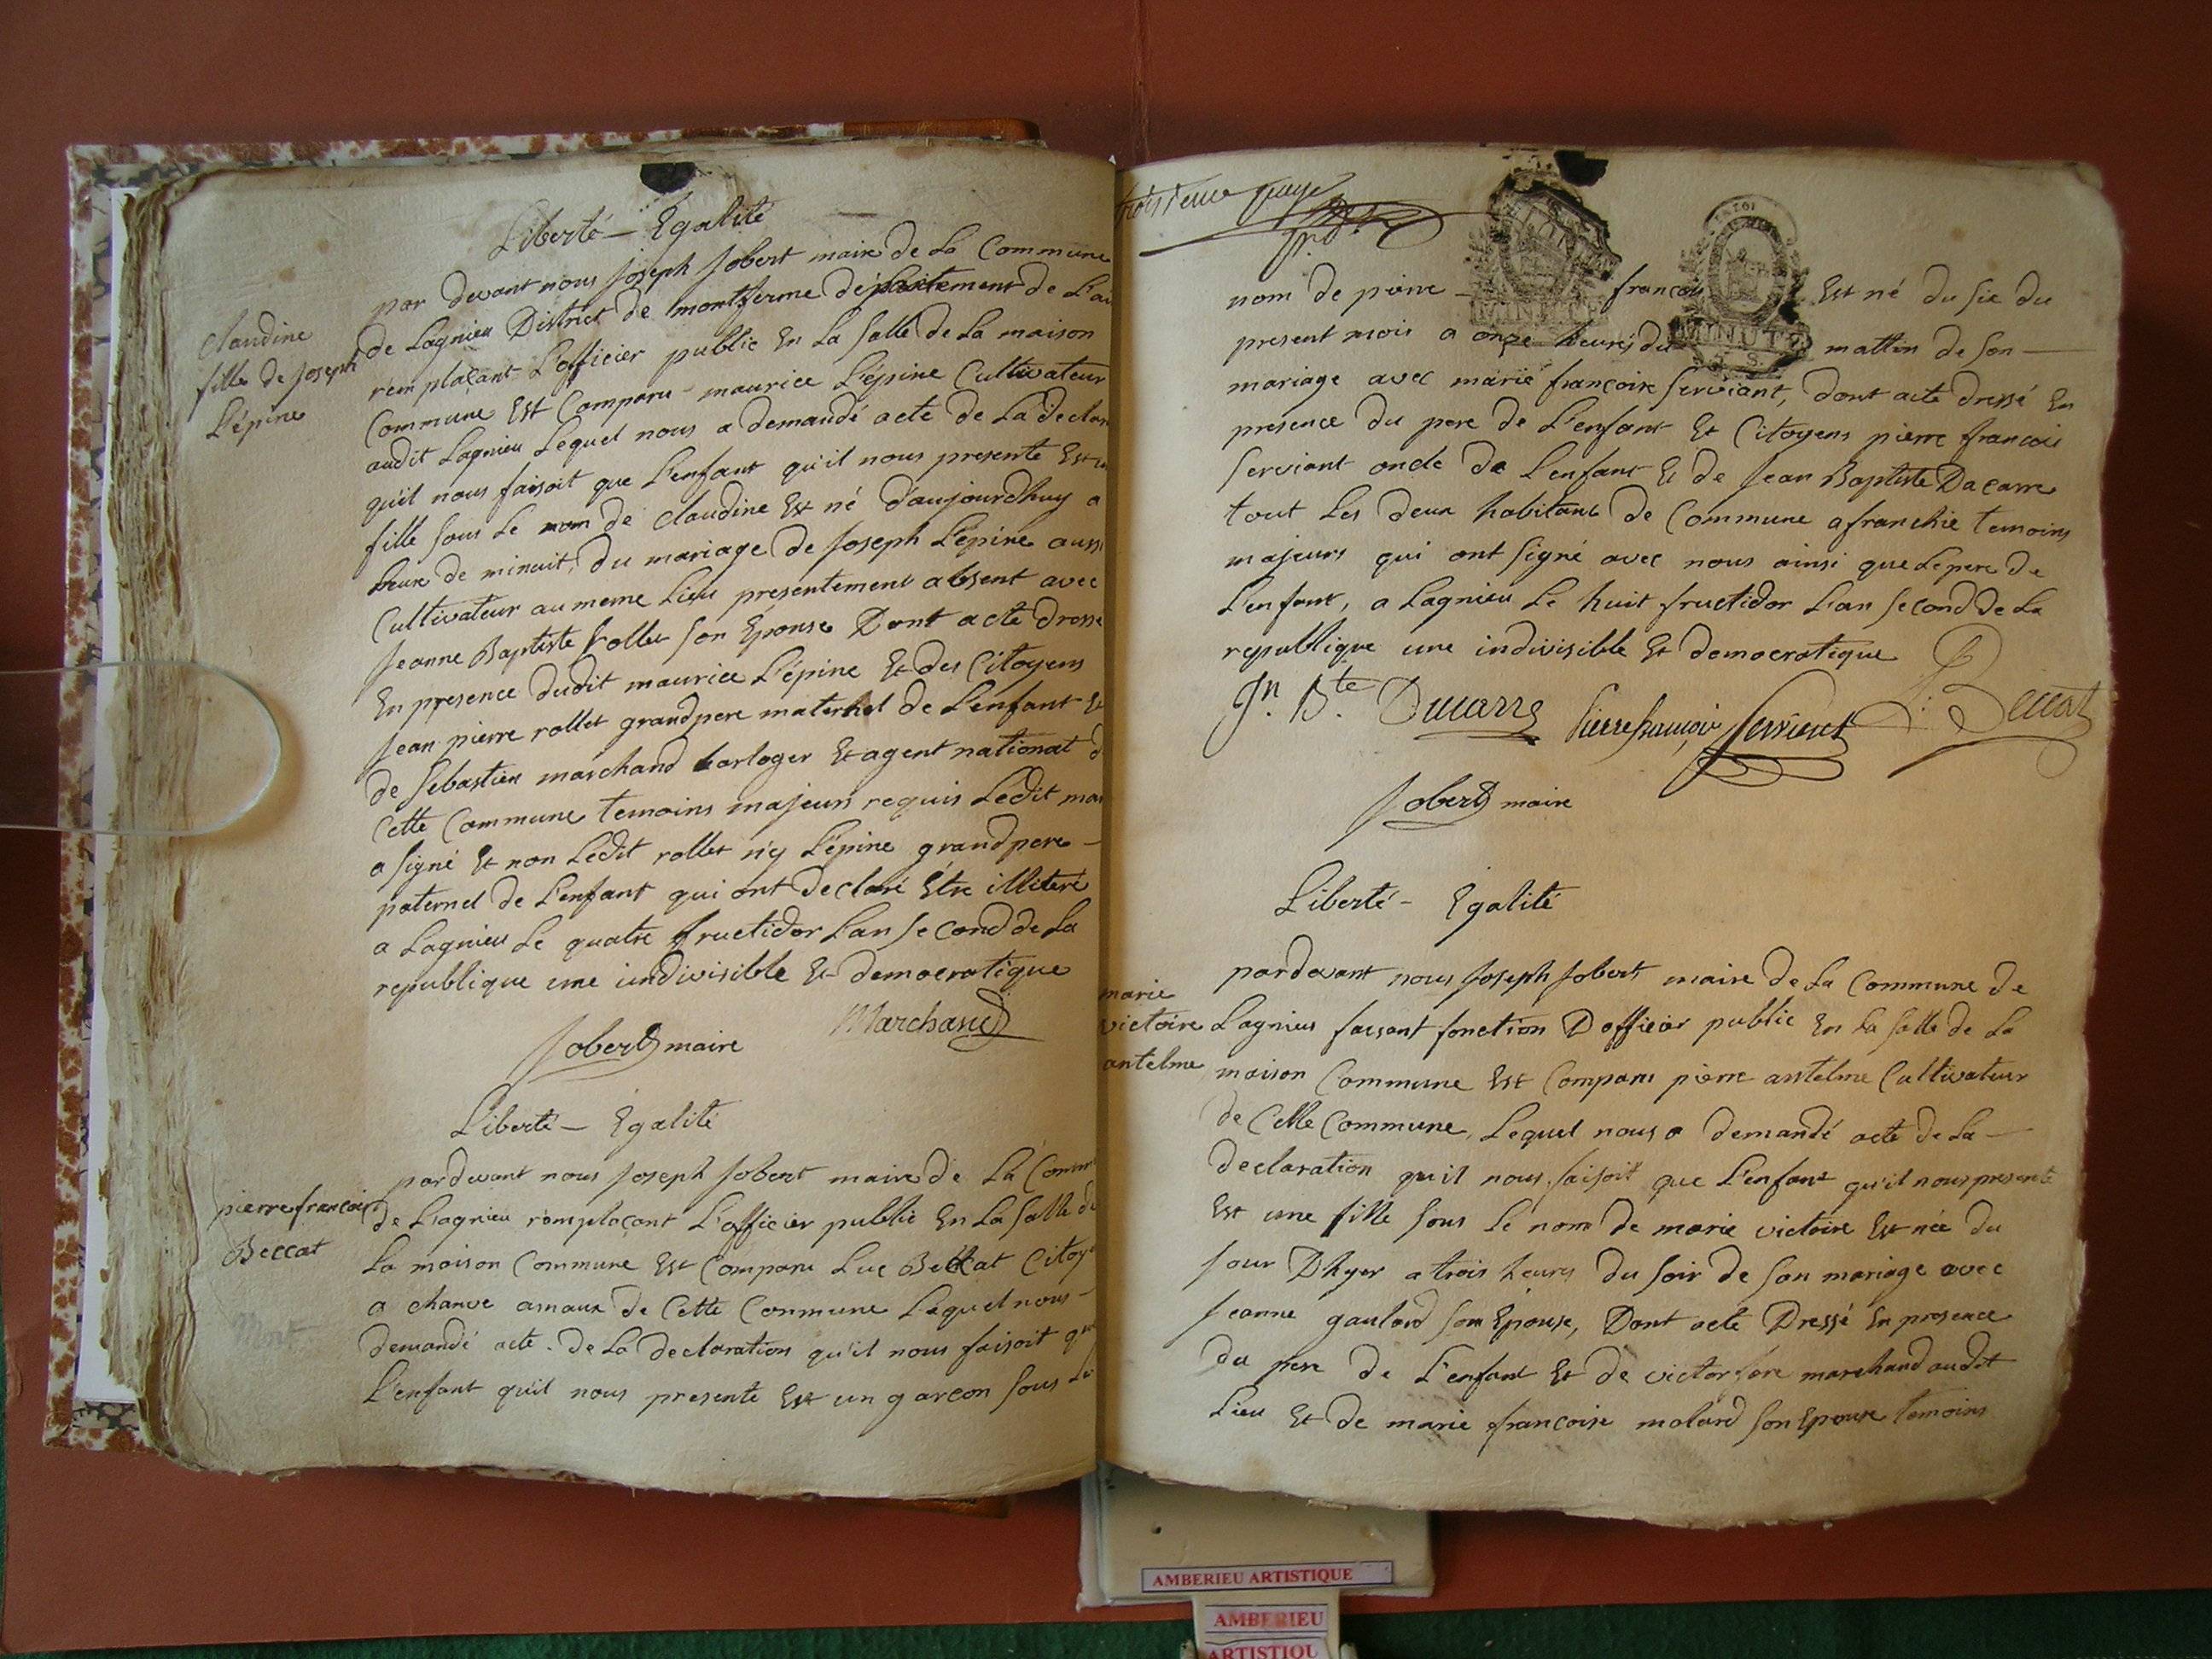 Liberté — Egalité
par devant nous joseph jobert maire de La Commune
de Lagnieu District de montferme département de L'ai
remplaçant L'officier public En La Salle de La maison
Commune Est Comparu - maurice L'épine Cultivateur
audit Lagnieu Lequel nous a demandé acte de La declar
qu'il nous faisoit que L'enfant qu'il nous presente Est u
fille Sous Le nom de claudine Est né d'aujourdhuy a
heure de minuit, du mariage de Joseph L'épine aussi
Cultivateur au meme Lieu presentement absent avec
Jeanne Baptiste Rollet Son Epouse Dont acte dressé
En presence dudit maurice L'épine Et des Citoyens
Jean pierre rollet grandpere maternel de L'enfant Et
de Sebastien marchand horloger Et agent national d
Cette Commune temoins majeurs requis Ledit mar
a Signé Et non Ledit rollet n'y L'épine grandpere -
paternel de L'enfant qui ont declaré Etre illiteré
a Lagnieu Le quatre fructidor L'an Second de La
republique une indivisible Et democratique
Jobert maire Marchand
claudine
fille de Joseph
L'épine
Liberté — Egalité
pardevant nous Joseph Jobert maire de La Comm
de Lagnieu remplaçant L'officier public En La Salle de
La maison Commune Est Comparu Luc Beccat Citoy
a chanve de Cette Commune Lequel nous -
demandé acte de La declaration qu'il nous faisoit qu
L'enfant qu'il nous presente Est un garcon Sous Le
pierre francois
Beccat
Mort
troisieme page
nom de pierre - francois Est né du Six du
present mois a onze heures du mattin de Son —
mariage avec marie francoise Serviant, dont acte dressé En
presence du pere de L'enfant Et Citoyens pierre francois
Serviant oncle de L'enfant Et de Jean Baptiste Ducarre
tout Les deux habitans de Commune afranchie temoins
majeurs qui ont Signé avec nous ainsi que Le pere de
L'enfant, a Lagnieu Le huit fructidor L'an Second de La
republique une indivisible Et democratique
Jn. Bte. Ducarre Pierre françois Servient Beccat
Jobert maire
MINUTE
MINUTE
Liberté - Egalité
pardevant nous Joseph Jobert maire de La Commune de
Lagnieu faisant fonction D'officier public En La Salle de La
maison Commune Est Comparu pierre antelme Cultivateur
de Cette Commune, Lequel nous a demandé acte de La —
declaration qu'il nous faisoit que L'enfant qu'il nous presente
Est une fille Sous Le nom de marie victoire Est née du
Jour D'hyer a trois heures du Soir de Son mariage avec
Jeanne gaulard Son Epouse, Dont acte Dressé En presence
du pere de L'enfant Et de victor marchand audit
Lieu Et de marie francoise molard Son Epouse temoins
marie
victoire
antelme
AMBERIEU ARTISTIQUE
AMBERIEU